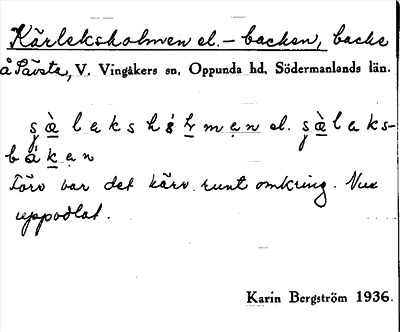 Kärleksholmen el. – backen, backe
å Sävsta, V. Vingåkers sn, Oppunda hd, Södermanlands län.
el.
Förr var det kärr runt omkring. Nu
uppodlat.
Karin Bergström 1936.